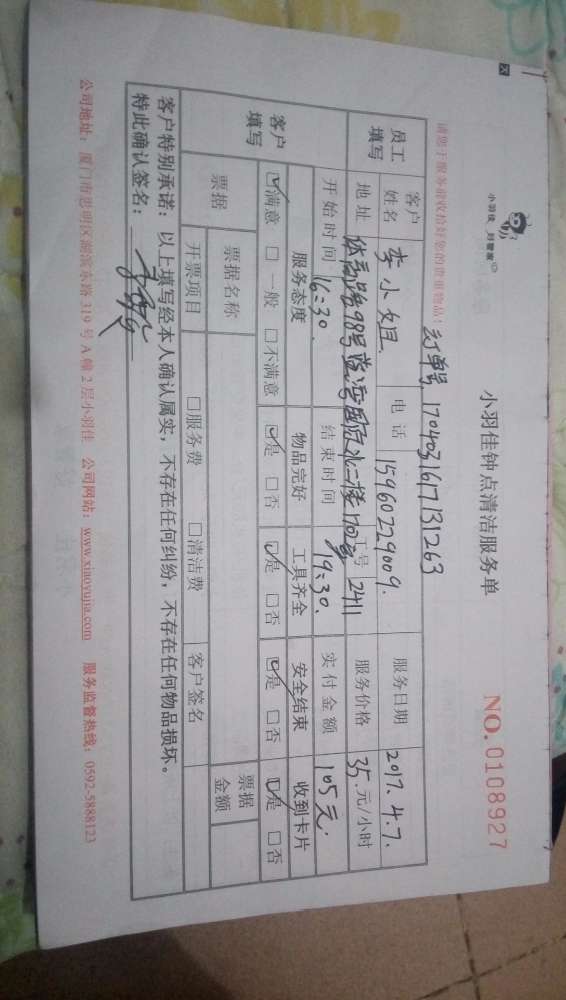 小羽佳 好管家
小羽佳钟点清洁服务单
NO.0108927
请您于服务前收拾好您的贵重物品!
订单号 170403161713126 3
员工填写
客户姓名 李小姐 电话 15960229009. 服务日期 2017.4.7.
地址 体育路98号 工号 2411 服务价格 35.元/小时
开始时间 16:30. 结束时间 19:30. 实付金额 105元.
客户填写
服务态度 物品完好 工具齐全 安全结束 收到卡片
☑满意 □一般 □不满意 ☑是 □否 ☑是 □否 ☑是 □否 ☑是 □否
票据 票据名称 票据金额
开票项目 □服务费 □清洁费 客户签名
客户特别承诺:以上填写经本人确认属实,不存在任何纠纷,不存在任何物品损坏。
特此确认签名:
公司地址:厦门市思明区湖滨东路319号A幢2层小羽佳 公司网站:www.xiaoyujia.com 服务监督热线:0592-5888123